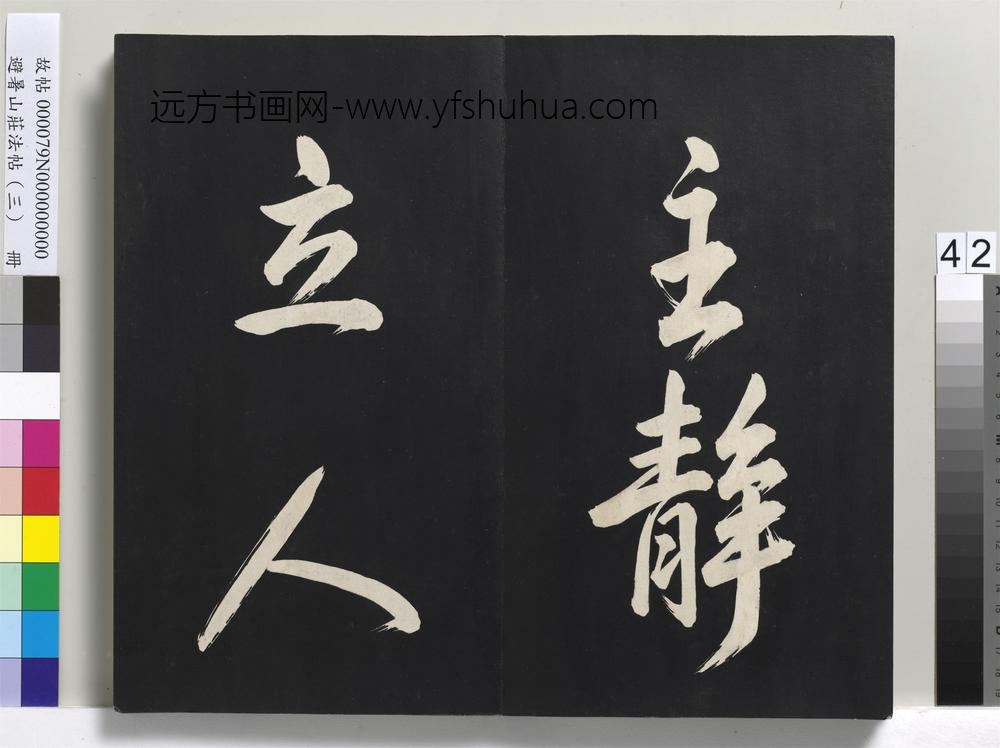 主靜
立人
远方书画网-www.yfshuhua.com
故帖 000079N000000000
避暑山莊法帖（三） 冊
42